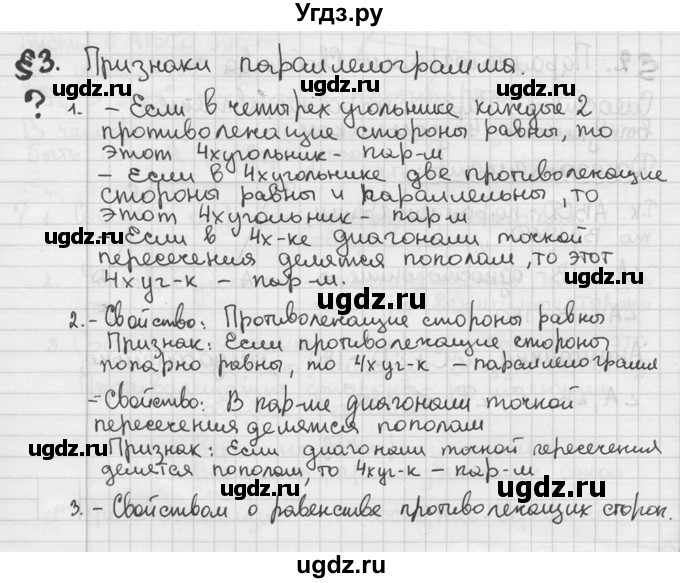 Угдз.ру
§3. Признаки параллелограмма.
? 1. – Если в четырёхугольнике каждые 2
противолежащие стороны равны, то
этот 4хугольник – пар-м
– Если в 4хугольнике две противолежащие
стороны равны и параллельны, то
этот 4хугольник – пар-м
– Если в 4х-ке диагонали точкой
пересечения делятся пополам, то этот
4хуг-к – пар-м.
2. – Свойство: Противолежащие стороны равны
Признак: Если противолежащие стороны
попарно равны, то 4хуг-к – параллелограмм
– Свойство: В пар-ме диагонали точкой
пересечения делятся пополам
Признак: Если диагонали точкой пересечения
делятся пополам, то 4хуг-к – пар-м
3. – Свойствам о равенстве противолежащих сторон.
ugdz.ru
ugdz.ru
ugdz.ru
ugdz.ru
ugdz.ru
ugdz.ru
ugdz.ru
ugdz.ru
ugdz.ru
ugdz.ru
ugdz.ru
ugdz.ru
ugdz.ru
ugdz.ru